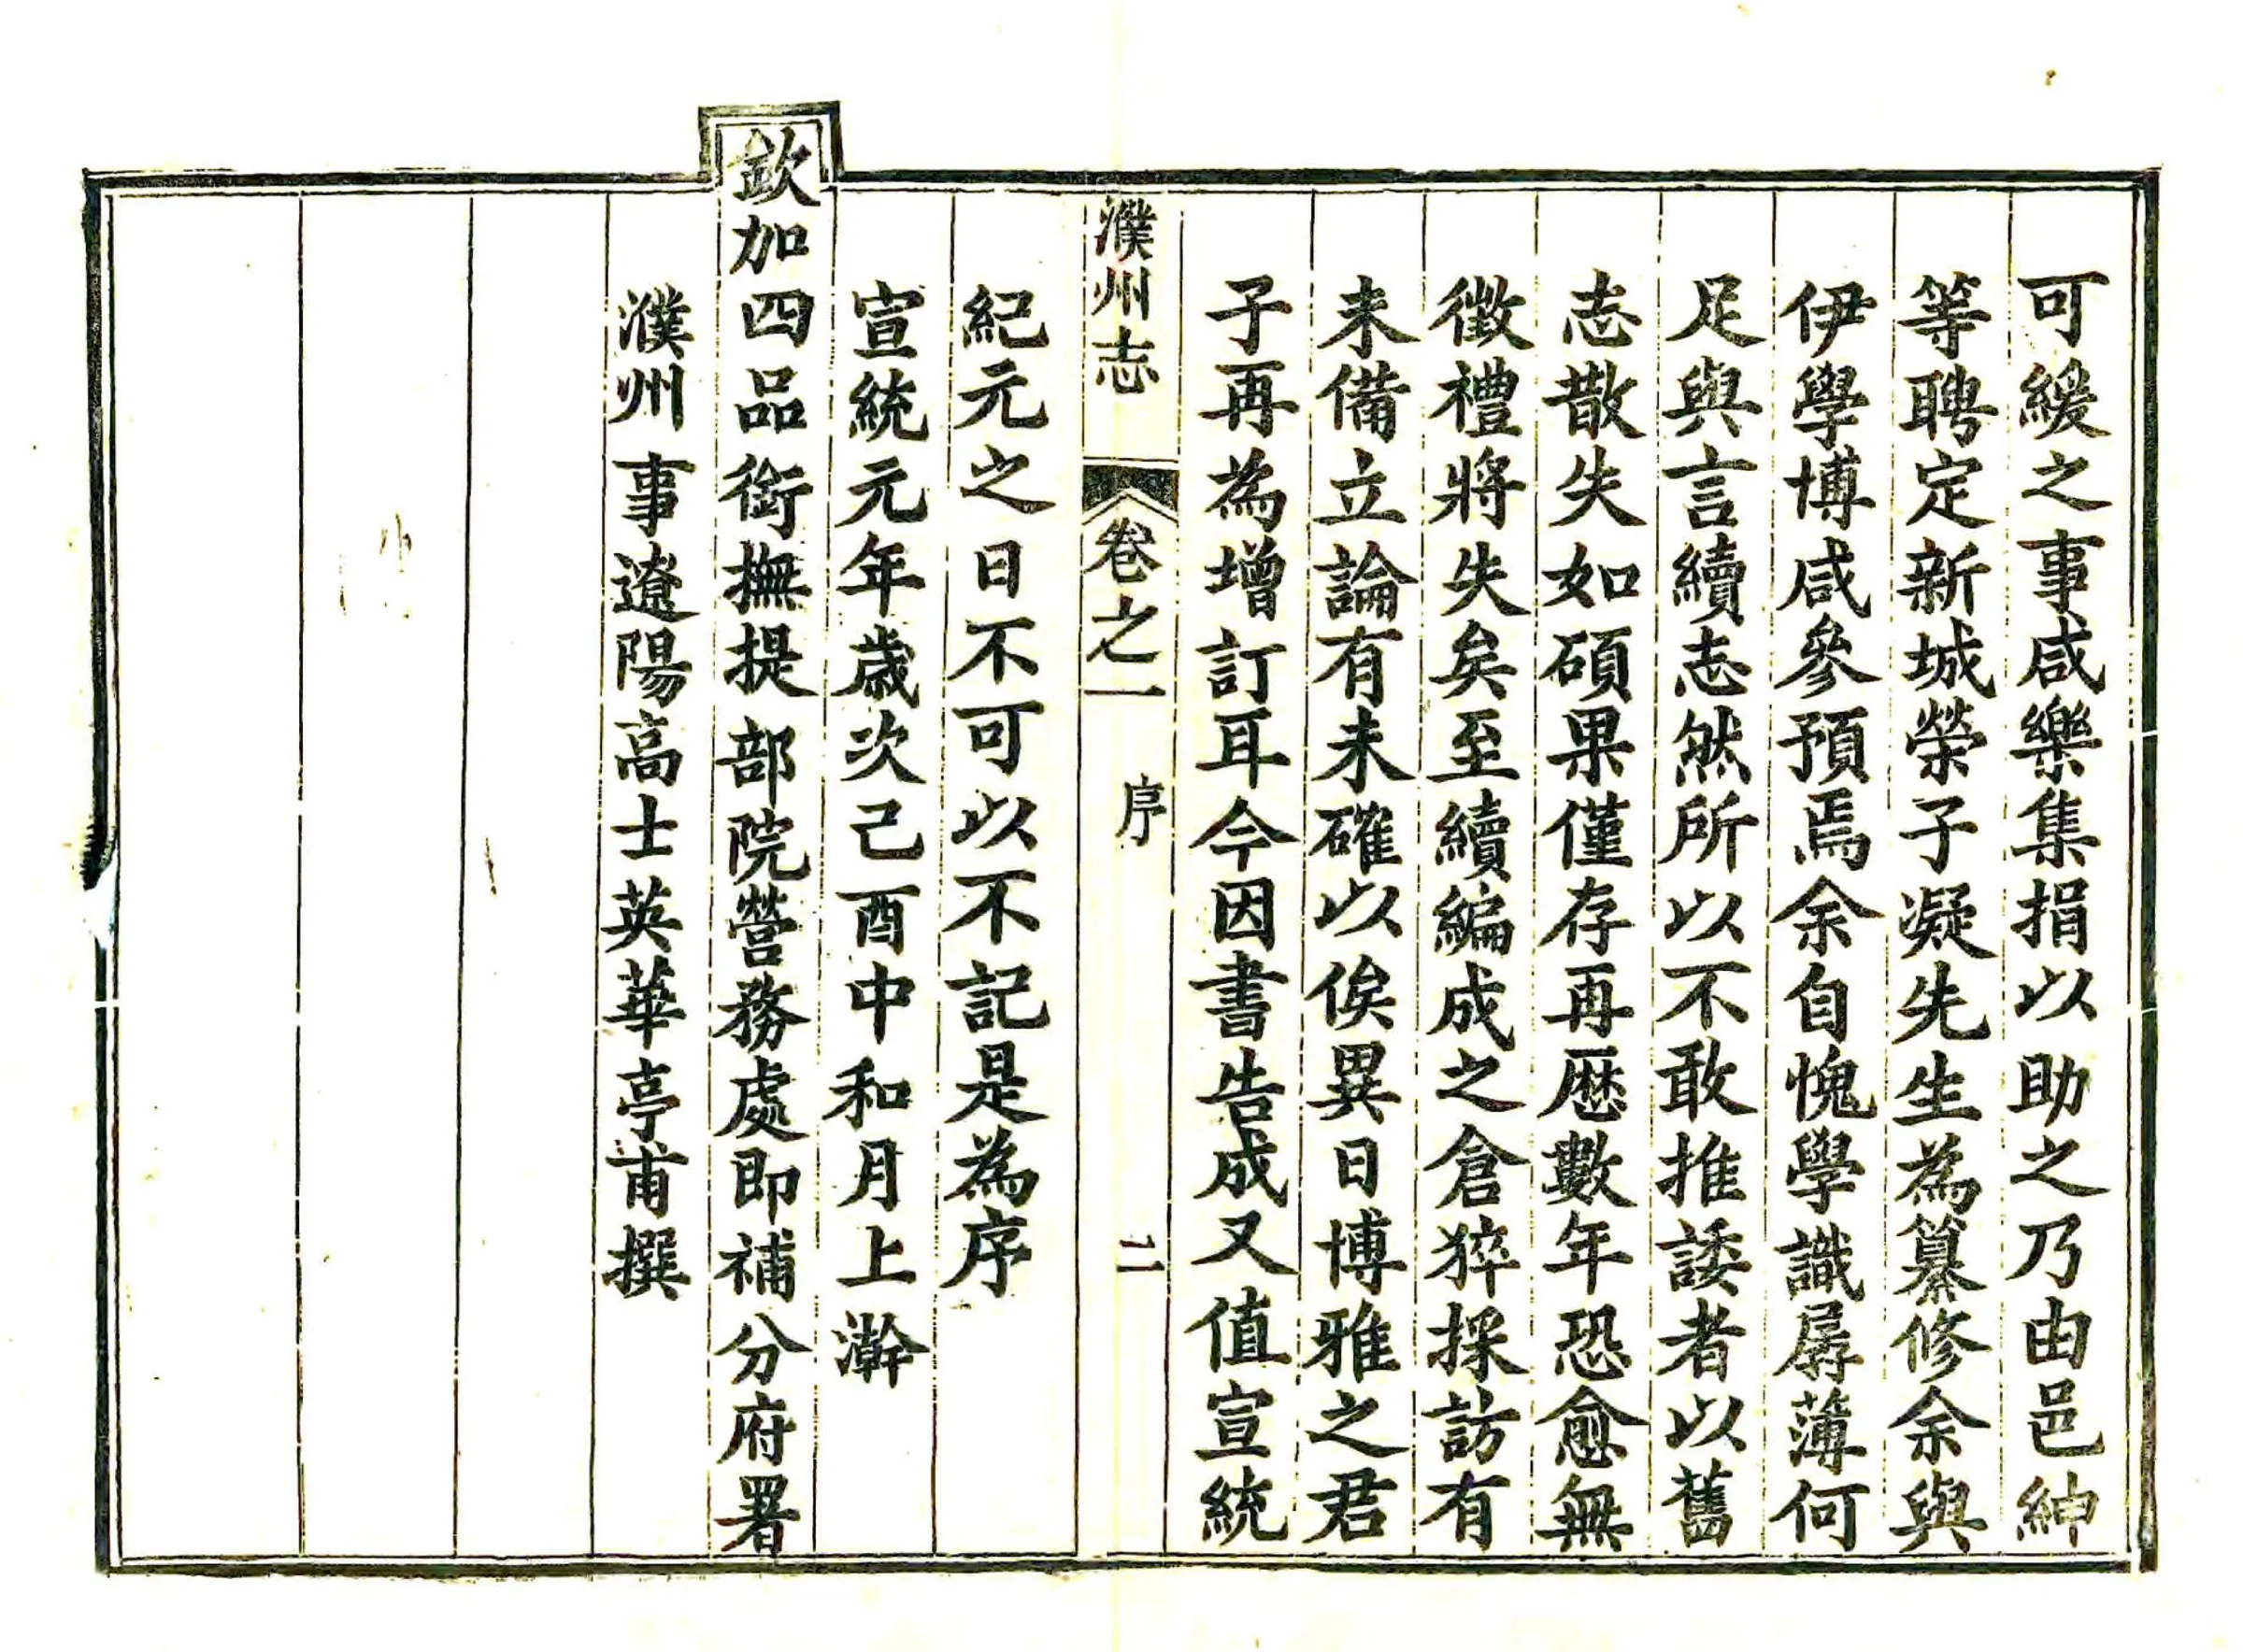 可緩之事咸樂集捐以助之乃由邑紳
等聘定新城榮子凝先生為纂修余與
伊學博咸參預焉余自愧學識孱薄何
足與言續志然所以不敢推諉者以舊
志散失如碩果僅存再歷數年恐愈無
徵禮將失矣至續編成之倉猝採訪有
未備立論有未確以俟異日博雅之君
子再為增訂耳今因書告成又值宣統
濮州志 卷之一 序 二
紀元之日不可以不記是為序
宣統元年歲次己酉中和月上澣
欽加四品銜撫提部院營務處即補分府署
濮州事遼陽高士英華亭甫撰